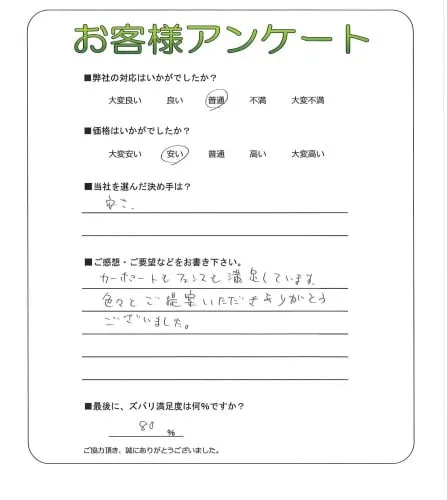 お客様アンケート
■弊社の対応はいかがでしたか？
大変良い 良い 普通 不満 大変不満
■価格はいかがでしたか？
大変安い 安い 普通 高い 大変高い
■当社を選んだ決め手は？
安さ.
■ご感想・ご要望などをお書き下さい。
カーポートもフェンスも満足しています.
色々とご提案いただきありがとう
ございました。
■最後に、ズバリ満足度は何%ですか？
80 %
ご協力頂き、誠にありがとうございました。